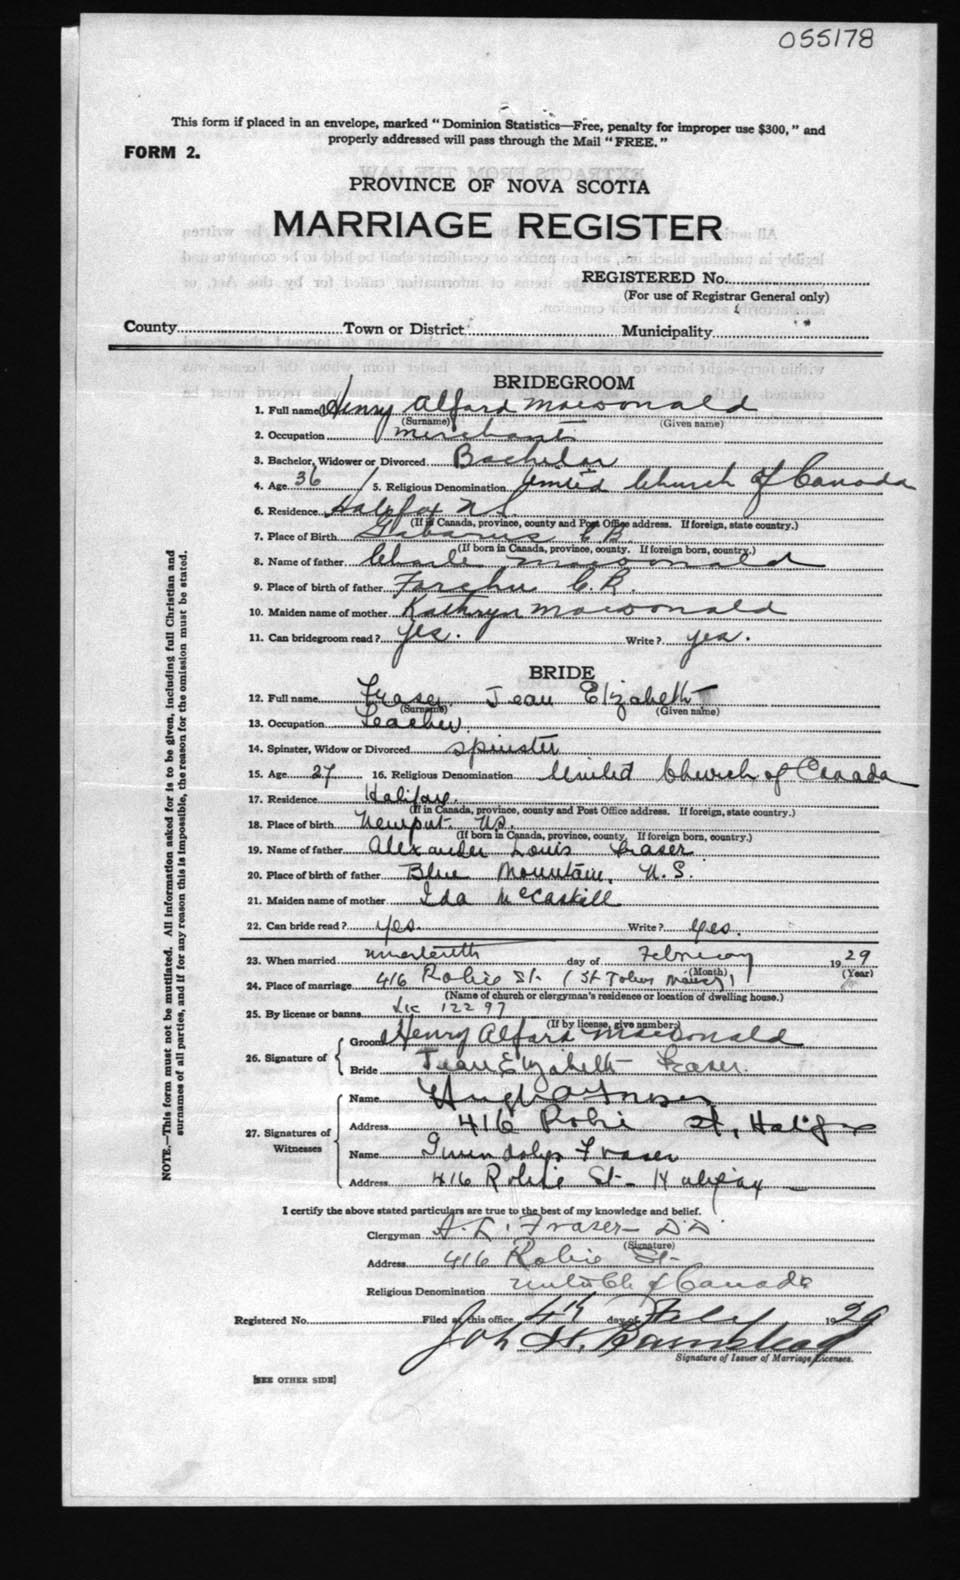 055178
This form if placed in an envelope, marked "Dominion Statistics—Free, penalty for improper use $300," and
properly addressed will pass through the Mail "FREE."
FORM 2.
PROVINCE OF NOVA SCOTIA
MARRIAGE REGISTER
REGISTERED No.
(For use of Registrar General only)
County Town or District Municipality
BRIDEGROOM
1. Full name Henry Alfard Macdonald
(Surname) (Given name)
2. Occupation merchant
3. Bachelor, Widower or Divorced Bachelor
4. Age 36 5. Religious Denomination United Church of Canada
6. Residence Halifax N.S.
(If in Canada, province, county and Post Office address. If foreign, state country.)
7. Place of Birth Gabarus C.B.
(If born in Canada, province, county. If foreign born, country.)
8. Name of father Macdonald
9. Place of birth of father C.B.
10. Maiden name of mother Kathryn Macdonald
11. Can bridegroom read? yes. Write? yes.
BRIDE
12. Full name Fraser Jean Elizabeth
(Surname) (Given name)
13. Occupation Teacher
14. Spinster, Widow or Divorced Spinster
15. Age 27 16. Religious Denomination United Church of Canada
17. Residence Halifax.
(If in Canada, province, county and Post Office address. If foreign, state country.)
18. Place of birth Newport N.S.
(If born in Canada, province, county. If foreign born, country.)
19. Name of father Alexander Louis Fraser
20. Place of birth of father Blue Mountain, N.S.
21. Maiden name of mother Ida McCaskill
22. Can bride read? Yes. Write? Yes.
23. When married day of February 1929
(Month) (Year)
24. Place of marriage 416 Robie St. (St John
(Name of church or clergyman's residence or location of dwelling house.)
25. By license or banns Lic 12297
(If by license, give number.)
26. Signature of
Groom Henry Alfard Macdonald
Bride Jean Elizabeth Fraser.
27. Signatures of Witnesses
Name Fraser
Address 416 Robie St, Halifax
Name Gwendolyn Fraser
Address 416 Robie St- Halifax
I certify the above stated particulars are true to the best of my knowledge and belief.
Clergyman A. L. Fraser- D.D.
(Signature)
Address 416 Robie St-
Religious Denomination Ch of Canada
Registered No. Filed at this office 4th day of Feby 1929
Signature of Issuer of Marriage Licenses.
[SEE OTHER SIDE]
NOTE.—This form must not be mutilated. All information asked for is to be given, including full Christian and
surnames of all parties, and if for any reason this is impossible, the reason for the omission must be stated.